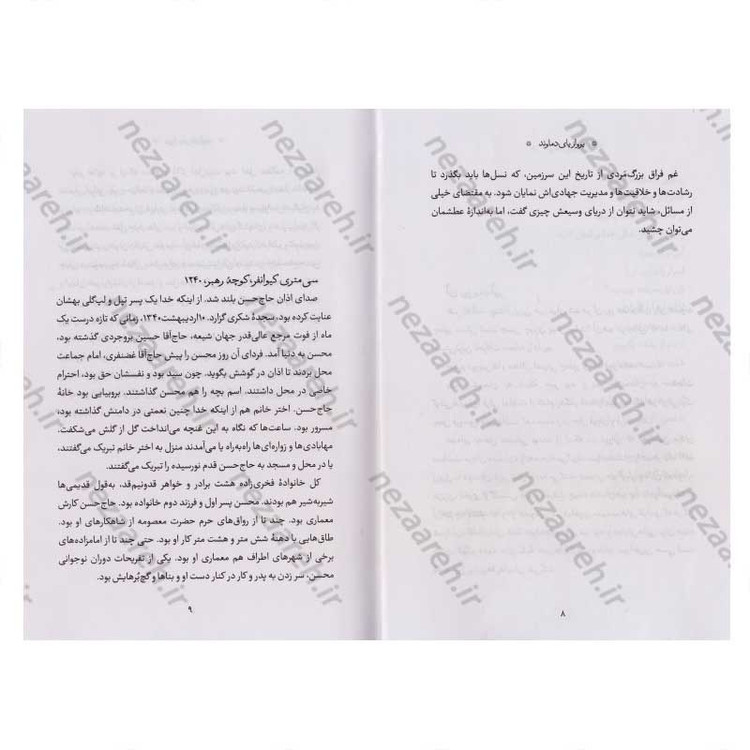 پرواز پای دماوند
غم فراق بزرگ‌مَردی از تاریخ این سرزمین، که نسل‌ها باید بگذرد تا
رشادت‌ها و خلاقیت‌ها و مدیریت جهادی‌اش نمایان شود. به مقتضای خیلی
از مسائل، شاید نتوان از دریای وسیعش چیزی گفت، اما به‌اندازهٔ عطشمان
می‌توان چشید.
۸
سی‌متری کیوانفر، کوچهٔ رهبر، ۱۲۴۰
صدای اذان حاج‌حسن بلند شد. از اینکه خدا یک پسر تپل و لپ‌گلی بهشان
عنایت کرده بود، سجدهٔ شکری گزارد. ۱۰اردیبهشت۱۳۴۰، زمانی که تازه درست یک
ماه از فوت مرجع عالی‌قدر جهان شیعه، حاج‌آقا حسین بروجردی گذشته بود،
محسن به دنیا آمد. فردای آن روز محسن را پیش حاج‌آقا غضنفری، امام جماعت
محل بردند تا اذان در گوشش بگوید. چون سید بود و نفسشان حق بود، احترام
خاصی در محل داشتند. اسم بچه را هم محسن گذاشتند. بروبیایی بود خانهٔ
حاج‌حسن. اختر خانم هم از اینکه خدا چنین نعمتی در دامنش گذاشته بود،
مسرور بود. ساعت‌ها که نگاه به این غنچه می‌انداخت گل از گلش می‌شکفت.
مهابادی‌ها و زواره‌ای‌ها راه‌به‌راه یا می‌آمدند منزل به اختر خانم تبریک می‌گفتند،
یا در محل و مسجد به حاج‌حسن قدم نورسیده را تبریک می‌گفتند.
کل خانوادهٔ فخری‌زاده هشت برادر و خواهر قدونیم‌قد، به‌قول قدیمی‌ها
شیربه‌شیر هم بودند. محسن پسر اول و فرزند دوم خانواده بود. حاج‌حسن کارش
معماری بود. چند تا از رواق‌های حرم حضرت معصومه از شاهکارهای او بود.
طاق‌هایی با دهنهٔ شش متر و هشت متر کار او بود. حتی چند تا از امامزاده‌های
برخی از شهرهای اطراف هم معماری او بود. یکی از تفریحات دوران نوجوانی
محسن، سر زدن به پدر و کار در کنار دست او و بناها و گچ‌بُرهایش بود.
۹
nezaareh.ir